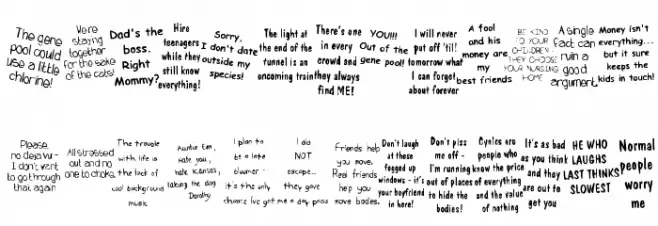 The gene
pool could
use a little
chlorine!
We're
staying
together
for the sake
of the cats!
Dad's the
boss.
Right
Mommy?
Hire
teenagers
while they
still know
everything!
Sorry,
I don't date
outside my
species!
The light at
the end of the
tunnel is an
oncoming train
There's one
in every
crowd and
they always
find ME!
YOU!!!
Out of the
gene pool!
I will never
put off 'til!
tomorrow what
I can forget
about forever
A fool
and his
money are
my
best friends
BE KIND
TO YOUR
CHILDREN.
THEY CHOOSE
YOUR NURSING
HOME
A single
fact can
ruin a
good
argument.
Money isn't
everything...
but it sure
keeps the
kids in touch!
Please,
no deja vu -
I don't want
to go through
that again
All stressed
out and no
one to choke.
The trouble
with life is
the lack of
background
music
Auntie Em,
Hate you,
hate Kansas,
taking the dog
Dorothy
I plan to
be a late
bloomer -
it's the only
I did
NOT
escape...
they gave
me a day pass
Friends help
you move.
Real friends
help you
move bodies.
Don't laugh
at these
fogged up
windows - it's
your boyfriend
in here!
Don't piss
me off -
I'm running
out of places
to hide the
bodies!
Cynics are
people who
know the price
of everything
and the value
of nothing
It's as bad
as you think
and they
are out to
get you
HE WHO
LAUGHS
LAST THINKS
SLOWEST
Normal
people
worry
me